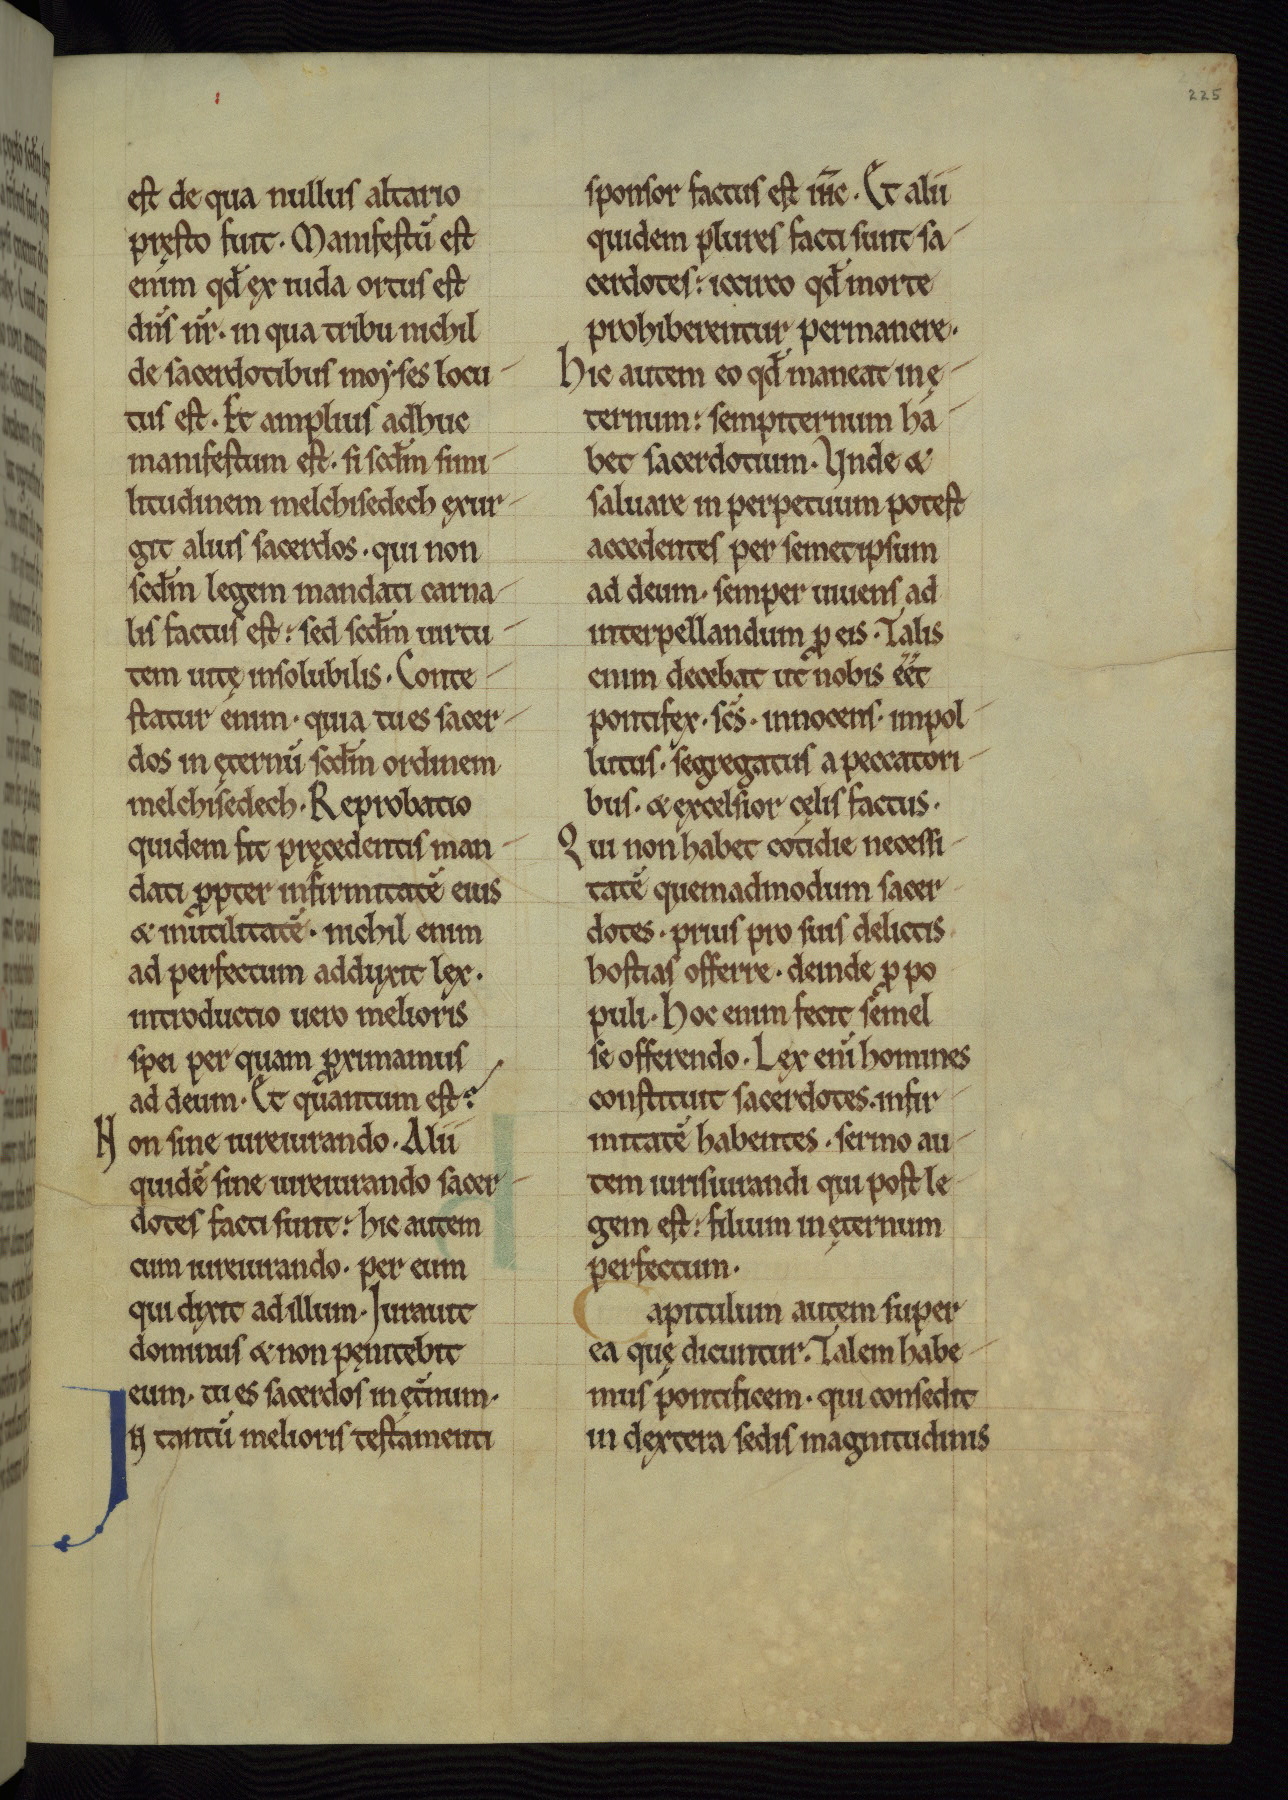 225
est de qua nullus altario
pręsto fuit. Manifestū est
enim qđ ex iuda ortus est
dn̄s nr̄. in qua tribu nichil
de sacerdotibus moyses locu-
tus est. Et amplius adhuc
manifestum est. si scđm simi-
litudinem melchisedech exur-
git alius sacerdos. qui non
scđm legem mandati carna-
lis factus est: sed scđm uirtu-
tem uitę insolubilis. Conte-
statur enim. quia tu es sacer-
dos in ęternū scđm ordinem
melchisedech. Reprobatio
quidem fit pręcedentis man-
dati ꝓpter infirmitatē eius
& inutilitatē. nichil enim
ad perfectum adduxit lex.
introductio uero melioris
spei per quam ꝓximamus
ad deum. Et quantum est:
Non sine iureiurando. Alii
quidē sine iureiurando sacer-
dotes facti sunt: hic autem
cum iureiurando. per eum
qui dixit ad illum. Iurauit
dominus & non pęnitebit
eum. tu es sacerdos in ęt̄num.
IN tantū melioris testamenti
sponsor factus est ih̄c. Et alii
quidem plures facti sunt sa-
cerdotes: iccirco qđ morte
prohiberentur permanere.
Hic autem eo qđ maneat in ę-
ternum: sempiternum ha-
bet sacerdotium. Unde &
saluare in perpetuum potest
accedentes per semetipsum
ad deum. semper uiuens ad
interpellandum ꝓ eis. Talis
enim decebat ut nobis eēt
pontifex. sc̄s. innocens. impol-
lutus. segregatus a peccatori-
bus. & excelsior cęlis factus.
Qui non habet cotidie necessi-
tatē quemadmodum sacer-
dotes. prius pro suis delictis
hostias offerre. deinde ꝓ po
puli. Hoc enim fecit semel
se offerendo. Lex eni̅ homines
constituit sacerdotes. infir-
mitatē habentes. sermo au-
tem iurisiurandi qui post le-
gem est: filium in ęternum
perfectum.
Capitulum autem super
ea quę dicuntur. Talem habe-
mus pontificem. qui consedit
in dextera sedis magnitudinis